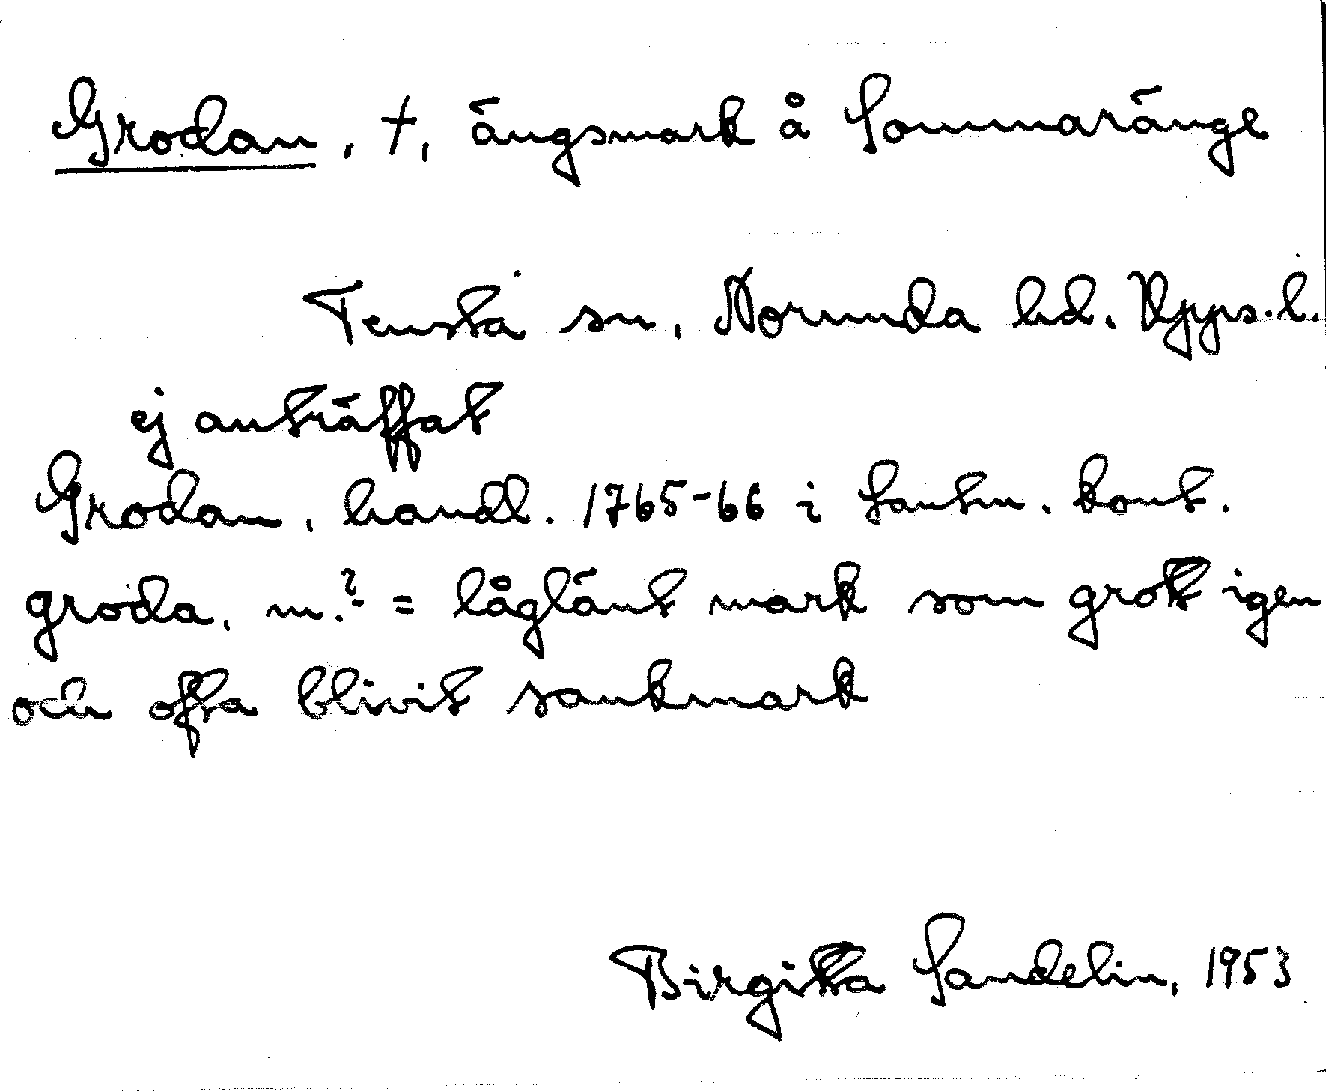 Grodan, †, ängsmark å Sommaränge
Tensta sn, Norunda hd. Upps. l.
ej anträffat
Grodan, handl. 1765-66 i lantm. kont.
groda, m.? = låglänt mark som grott igen
och ofta blivit sankmark
Birgitta Sandelin, 1953